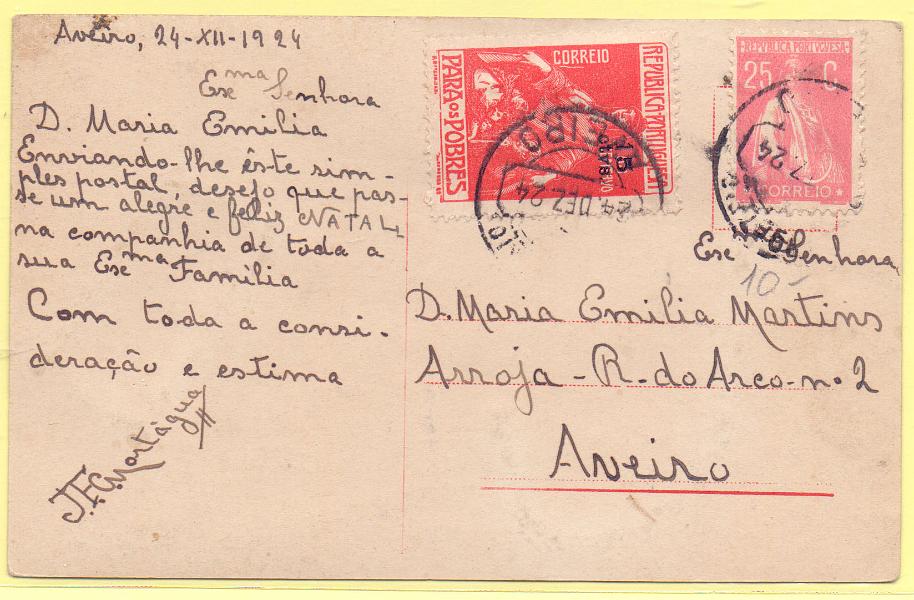 Aveiro, 24-XII-1924
Exma Senhora
D. Maria Emilia
Enviando-lhe êste sim-
ples postal, desejo que pas-
se um alegre e feliz NATAL
na companhia de toda a
sua Exma Família
Com toda a consi-
deração e estima
J.F.C. Mortágua
CORREIO
REPUBLICA PORTUGUESA
PARA OS POBRES
15
AVEIRO
24 DEZ 24
REPUBLICA PORTUGUESA
25 C.
CORREIO
Exma Senhora
10-
D. Maria Emilia Martins
Arroja - R. do Arco - nº 2
Aveiro